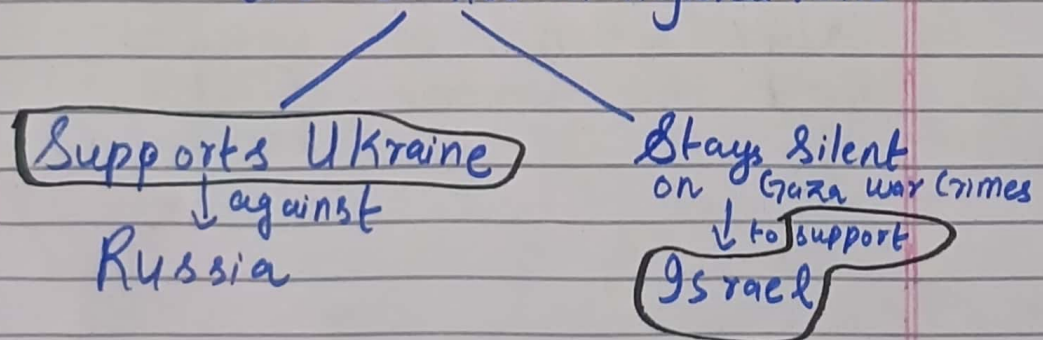 Supports Ukraine
↓ against
Russia
Stays Silent
on Gaza war Crimes
↓ to support
Israel